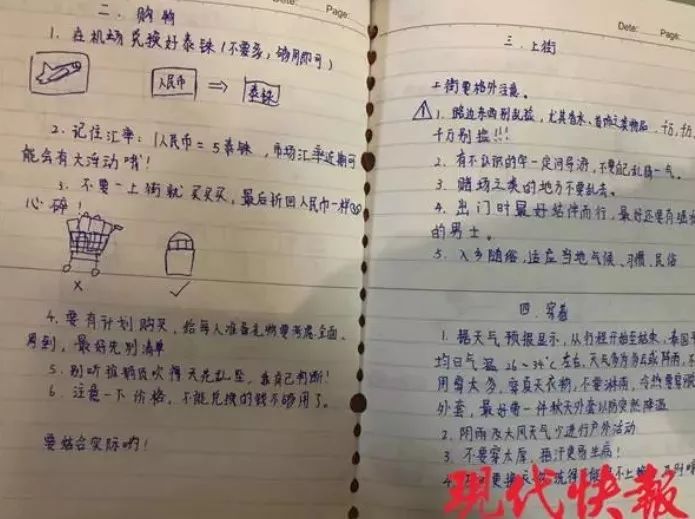 二、购物
1. 在机场兑换好泰铢(不要多,够用即可)
人民币 ⇒ 泰铢
2. 记住汇率:1人民币=5泰铢,市场汇率近期可
能会有大浮动哦!
3. 不要一上街就买买买,最后折回人民币一样
心碎!
× ✓
4. 要有计划购买,给每人准备礼物要考虑全面、
周到,最好先列清单
5. 别听推销员吹得天花乱坠,靠自己判断!
6. 注意一下价格,不能兑换的钱不够用了。
要结合实际哟!
Date: Page:
三、上街
上街要格外注意。
1. 路边东西别乱捡,尤其香水、首饰之类物品,千万,千
千万别捡!!!
2. 有不认识的字一定问导游,不要自己乱猜一气。
3. 赌场之类的地方不要乱去。
4. 出门时最好结伴而行,最好还要有强
的男士。
5. 入乡随俗,适应当地气候、习惯、民俗
四、穿着
1. 据天气预报显示,从行程开始至结束,泰国
均日气温26~34℃左右,天气多为多云或阵雨,
用带太多,穿夏天衣物,不要淋雨,
外套,最好带一件秋天外套以防突然降温
2. 阴雨及大风天气少进行户外活动
3. 不要穿太厚,捂汗更易生病!
4.
现代快报